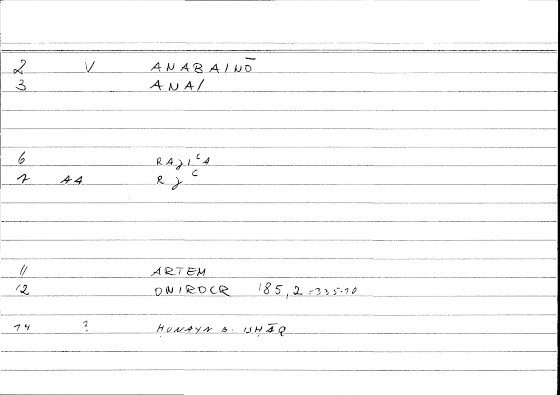 2 V ANABAINŌ
3 ANA/
6 RAJIʿA
7 AA RJʿ
11 ARTEM
12 ONIROCR 185,2 = 335.10
14 ? ḤUNAYN B. ISḤĀQ